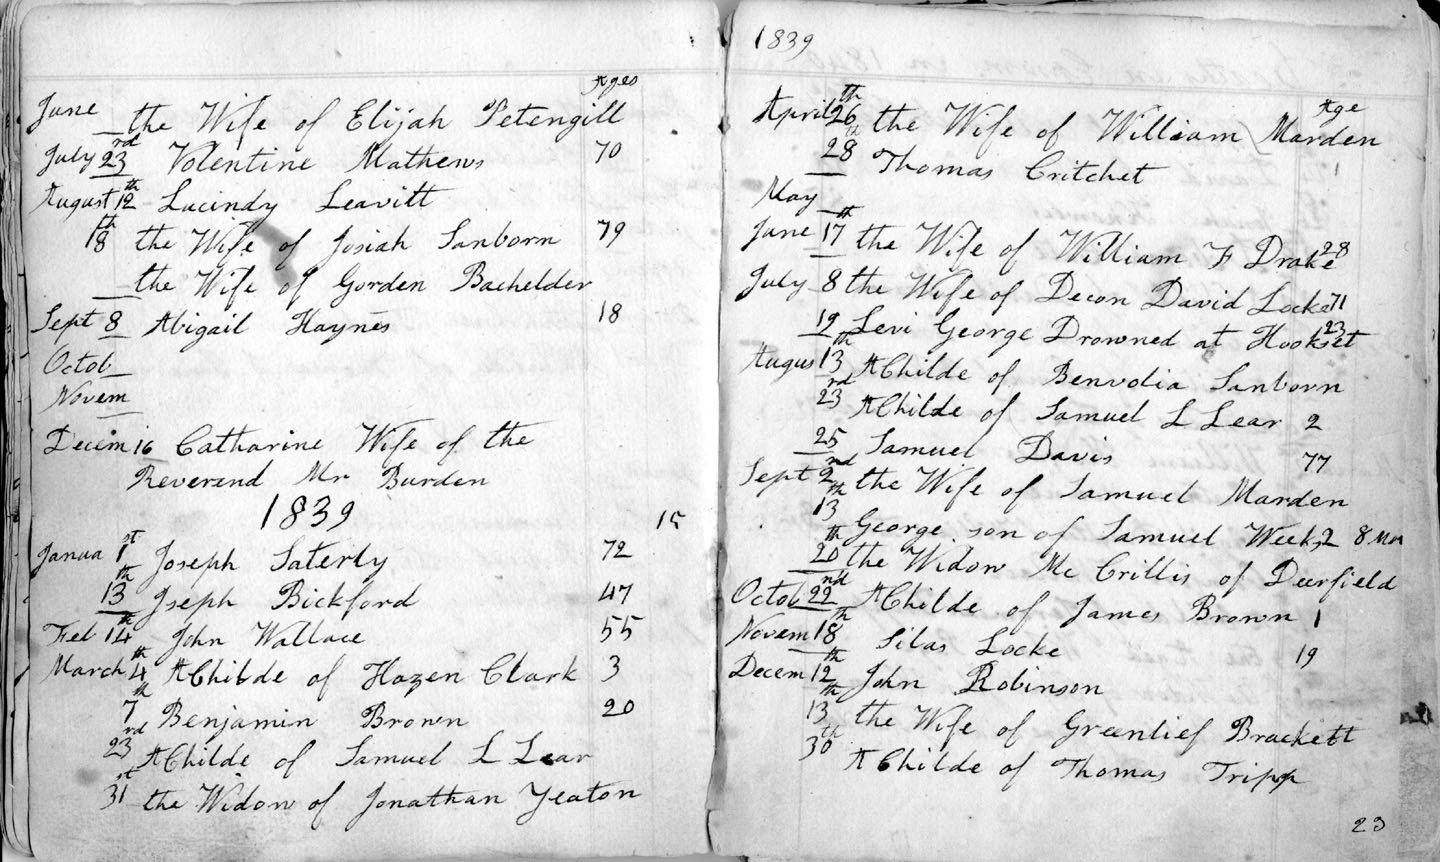 Ages
June the Wife of Elijah Petengill
July 23rd Volentine Mathews 70
August 12th Lucindy Leavitt
18th the Wife of Josiah Sanborn 79
the Wife of Gorden Bachelder
Sept 8 Abigail Haynes 18
Octob
Novem
Decem 16 Catharine Wife of the
Reverend Mr Burden
1839 15
Janua 1st Joseph Saterly 72
13th Joseph Bickford 47
Feb 14th John Wallace 55
March 4th A Childe of Hazen Clark 3
7th Benjamin Brown 20
23rd A Childe of Samuel L Lear
31st the Widow of Jonathan Yeaton
1839
Age
April 26th the Wife of William Marden
28th Thomas Critchet 1
May
June 17th the Wife of William F Drake 28
July 8 the Wife of Decon David Locke 71
19 Levi George Drowned at Hookset 23
Augus 13th A Childe of Benvolia Sanborn
23rd A Childe of Samuel L Lear 2
25 Samuel Davis 77
Sept 2nd the Wife of Samuel Marden
13th George son of Samuel Weeks 2 8 Mon
20th the Widow Mc Crillis of Deerfield
Octob 22nd A Childe of James Brown 1
Novem 18th Silas Locke 19
Decem 12th John Robinson
13th the Wife of Greenlief Brackett
30th A Childe of Thomas Tripp
23